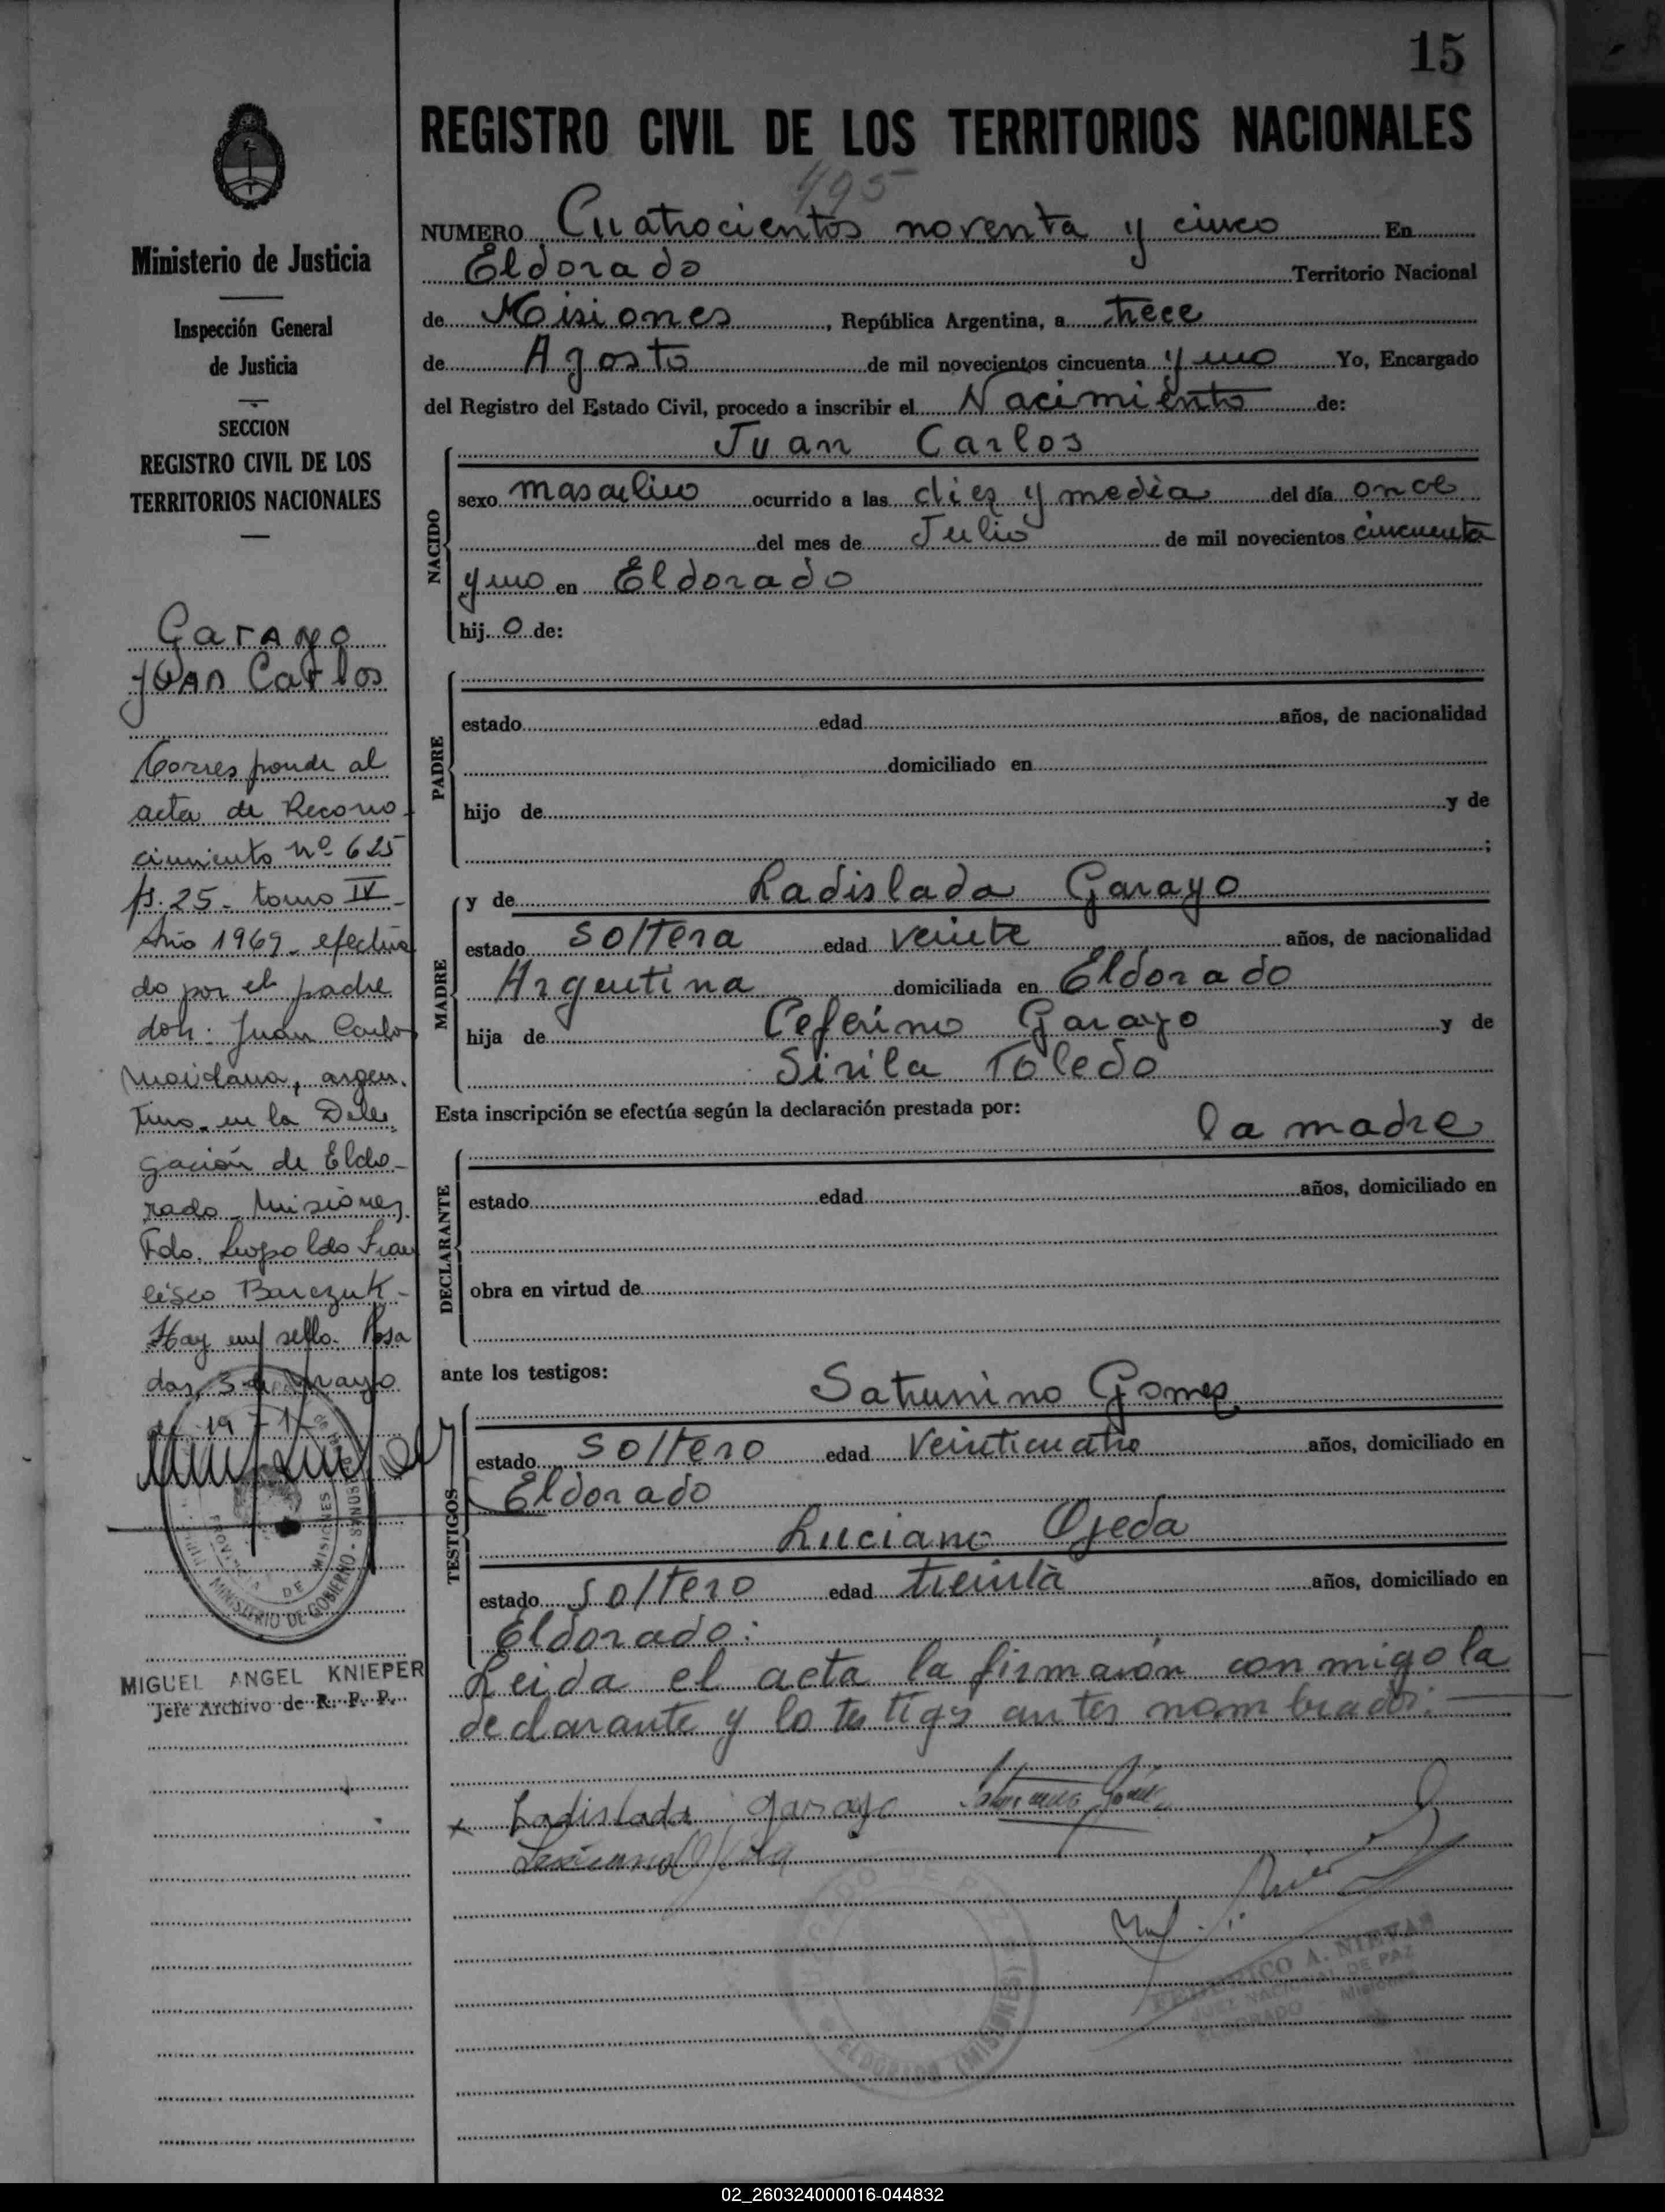 15
REGISTRO CIVIL DE LOS TERRITORIOS NACIONALES
495
NUMERO Cuatrocientos noventa y cinco En
Eldorado Territorio Nacional
de Misiones, República Argentina, a trece
de Agosto de mil novecientos cincuenta y uno Yo, Encargado
del Registro del Estado Civil, procedo a inscribir el Nacimiento de:
Juan Carlos
NACIDO
sexo masculino ocurrido a las diez y media del día once
del mes de Julio de mil novecientos cincuenta
y uno en Eldorado
hij o de:
PADRE
estado edad años, de nacionalidad
domiciliado en
hijo de y de
;
MADRE
y de Ladislada Garayo
estado soltera edad veinte años, de nacionalidad
Argentina domiciliada en Eldorado
hija de Ceferino Garayo y de
Sirila Toledo
Esta inscripción se efectúa según la declaración prestada por:
la madre
DECLARANTE
estado edad años, domiciliado en
obra en virtud de
ante los testigos:
TESTIGOS
Saturnino Gomez
estado soltero edad veinticuatro años, domiciliado en
Eldorado
Luciano Ojeda
estado soltero edad treinta años, domiciliado en
Eldorado:
Leida el acta la firmarón conmigo la
declarante y lo testigs antes nombrados:
Ladislada garayo
FEDERICO A. NIEVAS
JUEZ NACIONAL DE PAZ
ELDORADO - Misiones
ELDORADO (MISIONES)
Ministerio de Justicia
Inspección General
de Justicia
SECCION
REGISTRO CIVIL DE LOS
TERRITORIOS NACIONALES
Garayo
Juan Carlos
Corresponde al
acta de Recono-
cimiento nº 625
fs. 25 - tomo IV -
Año 1969 - efectua
do por el padre
don: Juan Carlos
Maidana, argen.
tino en la Dele
gación de Eldo-
rado - Misiones
Fdo. Leopoldo Fran
cisco Barczuk -
Hay un sello. Posa
das, 3 de mayo
de 1971
MINISTERIO DE GOBIERNO
DE MISIONES
MIGUEL ANGEL KNIEPER
Jefe Archivo de R. P. P.
02_260324000016-044832